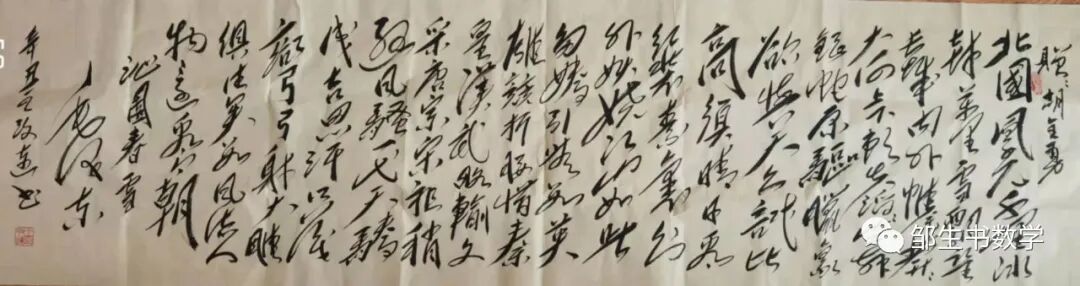 北國風光千里冰
封萬里雪飄望
長城内外惟余莽
大河上下頓失滔
銀蛇原驅臘象
欲与天公試比
高須晴日看
紅裝素裹分
外妖嬈江山如此
多嬌引無數英
雄競折腰惜秦
皇漢武略輸文
采唐宗宋祖稍
遜風騷一代天驕
成吉思汗只識
彎弓射大雕
俱往矣數風流人
物還看今朝
沁園春雪
毛澤東
辛丑之
邹生书数学